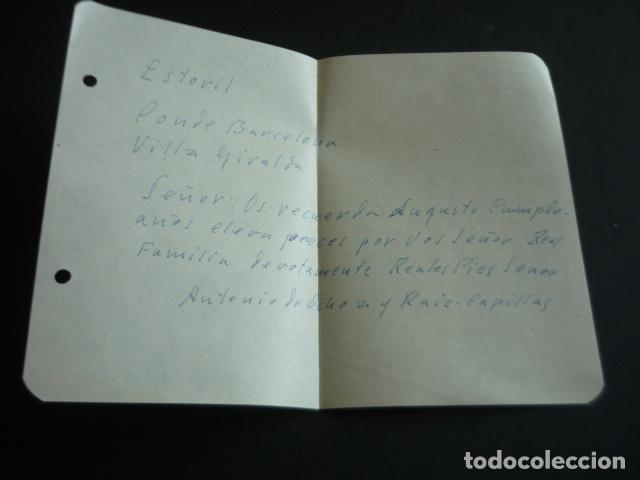 Estoril
Conde Barcelona
Villa Giralda
Señor: Os recuerda Augusto Cumple-
años eleva preces por Vos Señor Real
Familia devotamente Reales Pies Señor
Antonio de Ochoa y Ruiz-Capillas
todocoleccion